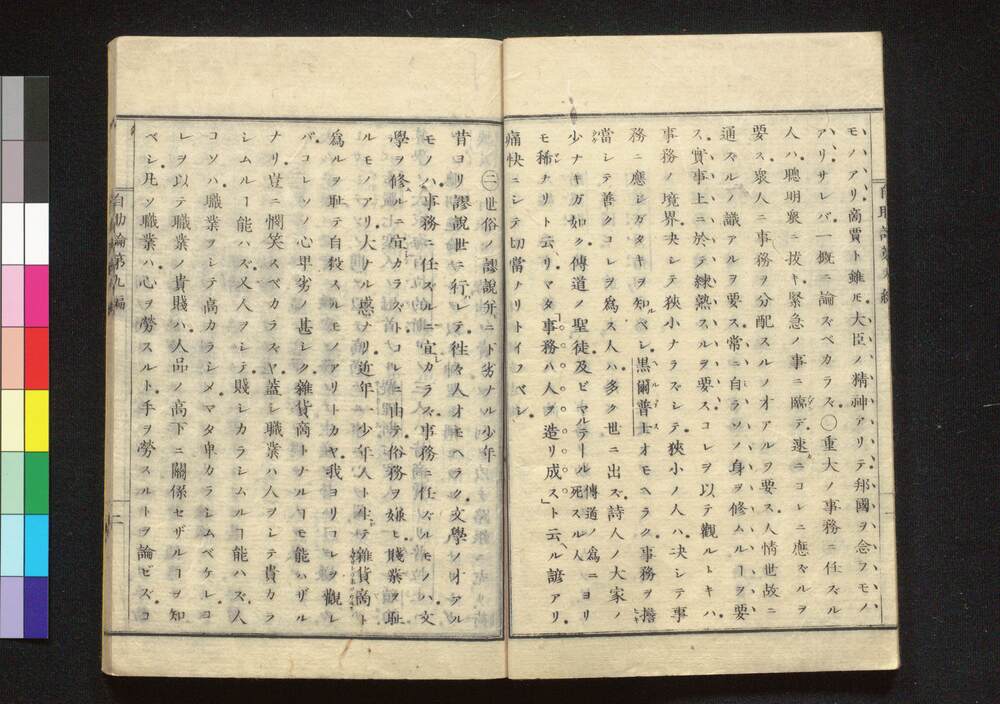 モノアリ商賈ト雖モ大臣ノ精神アリテ邦國ヲ念フモノ
アリサレバ一概ニ論ズベカラス○重大ノ事務ニ任ズル
人ハ聰明衆ニ拔キ緊急ノ事ニ臨デ速ニコレニ應ズルヲ
要ス衆人ニ事務ヲ分配スルノ才アルヲ要ス人情世故ニ
通ズルノ識アルヲ要ス常ニ自ラソノ身ヲ修ムルヿヲ要
ス實事上ニ於テ練熟スルヲ要スコレヲ以テ觀ルトキハ
事務ノ境界决シテ狹小ナラズシテ狹小ノ人ハ决シテ事
務ニ應シガタキヲ知ルベシ黑爾普士オモヘラク事務ヲ擔
當シテ善クコレヲ爲ス人ハ多ク世ニ出ズ詩人ノ大家ノ
少ナキガ如ク傳道ノ聖徒及ビマルテール傳道ノ爲ニ死スル人ヨリ
モ稀ナリト云リマタ「事務ハ人ヲ造リ成ス」ト云ヘル諺アリ
痛快ニシテ切當ナリトイフベシ
自助論第九編
㊁世俗ノ謬說所ニト劣ナル少年
昔ヨリ謬說世ニ行レテ徃々人オモヘラク文學ノ才アル
モノハ事務ニ任スルニ宜カラズ事務ニ任ズルモノハ文
學ヲ修ルニ宜カラズトコレニ由テ俗務ヲ嫌ヒ賤業ヲ耻
ルモノアリ大ナル惑ナリ近年一少年人ト生テ雜貨商ト
爲ルヲ耻テ自殺スルモノアリトカヤ我ヨリコレヲ觀レ
バコレソノ心卑劣ノ甚シク雜貨商トナルヿモ能ハザル
ナリ豈ニ憫笑スベカラズヤ蓋シ職業ハ人ヲシテ貴カラ
シムルヿ能ハズ又人ヲシテ賤シカラシムルヿ能ハズ人
コソハ職業ヲシテ高カラシメマタ卑カラシムベケレコ
レヲ以テ職業ノ貴賤ハ人品ノ高下ニ關係セザルヿヲ知
ベシ凡ソ職業ハ心ヲ勞スルト手ヲ勞スルトヲ論ビズコ
自助論第九編
二